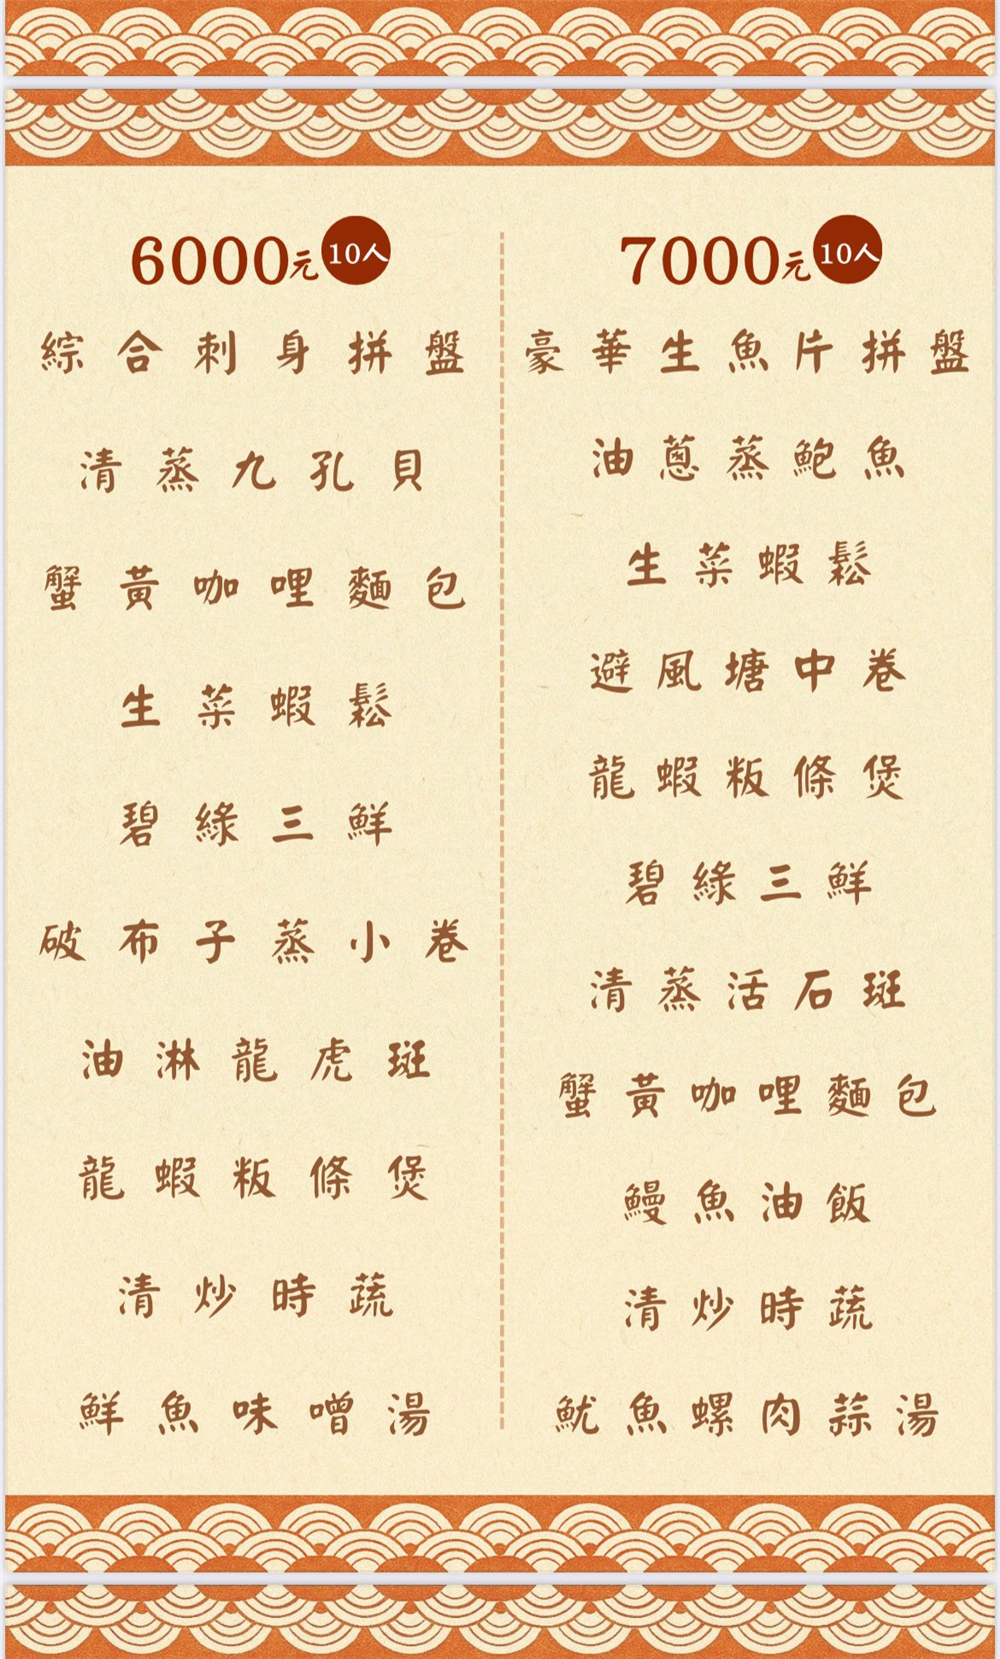 6000元 10人
綜合刺身拼盤
清蒸九孔貝
蟹黃咖哩麵包
生菜蝦鬆
碧綠三鮮
破布子蒸小卷
油淋龍虎斑
龍蝦粄條煲
清炒時蔬
鮮魚味噌湯
7000元 10人
豪華生魚片拼盤
油蔥蒸鮑魚
生菜蝦鬆
避風塘中卷
龍蝦粄條煲
碧綠三鮮
清蒸活石斑
蟹黃咖哩麵包
鰻魚油飯
清炒時蔬
魷魚螺肉蒜湯